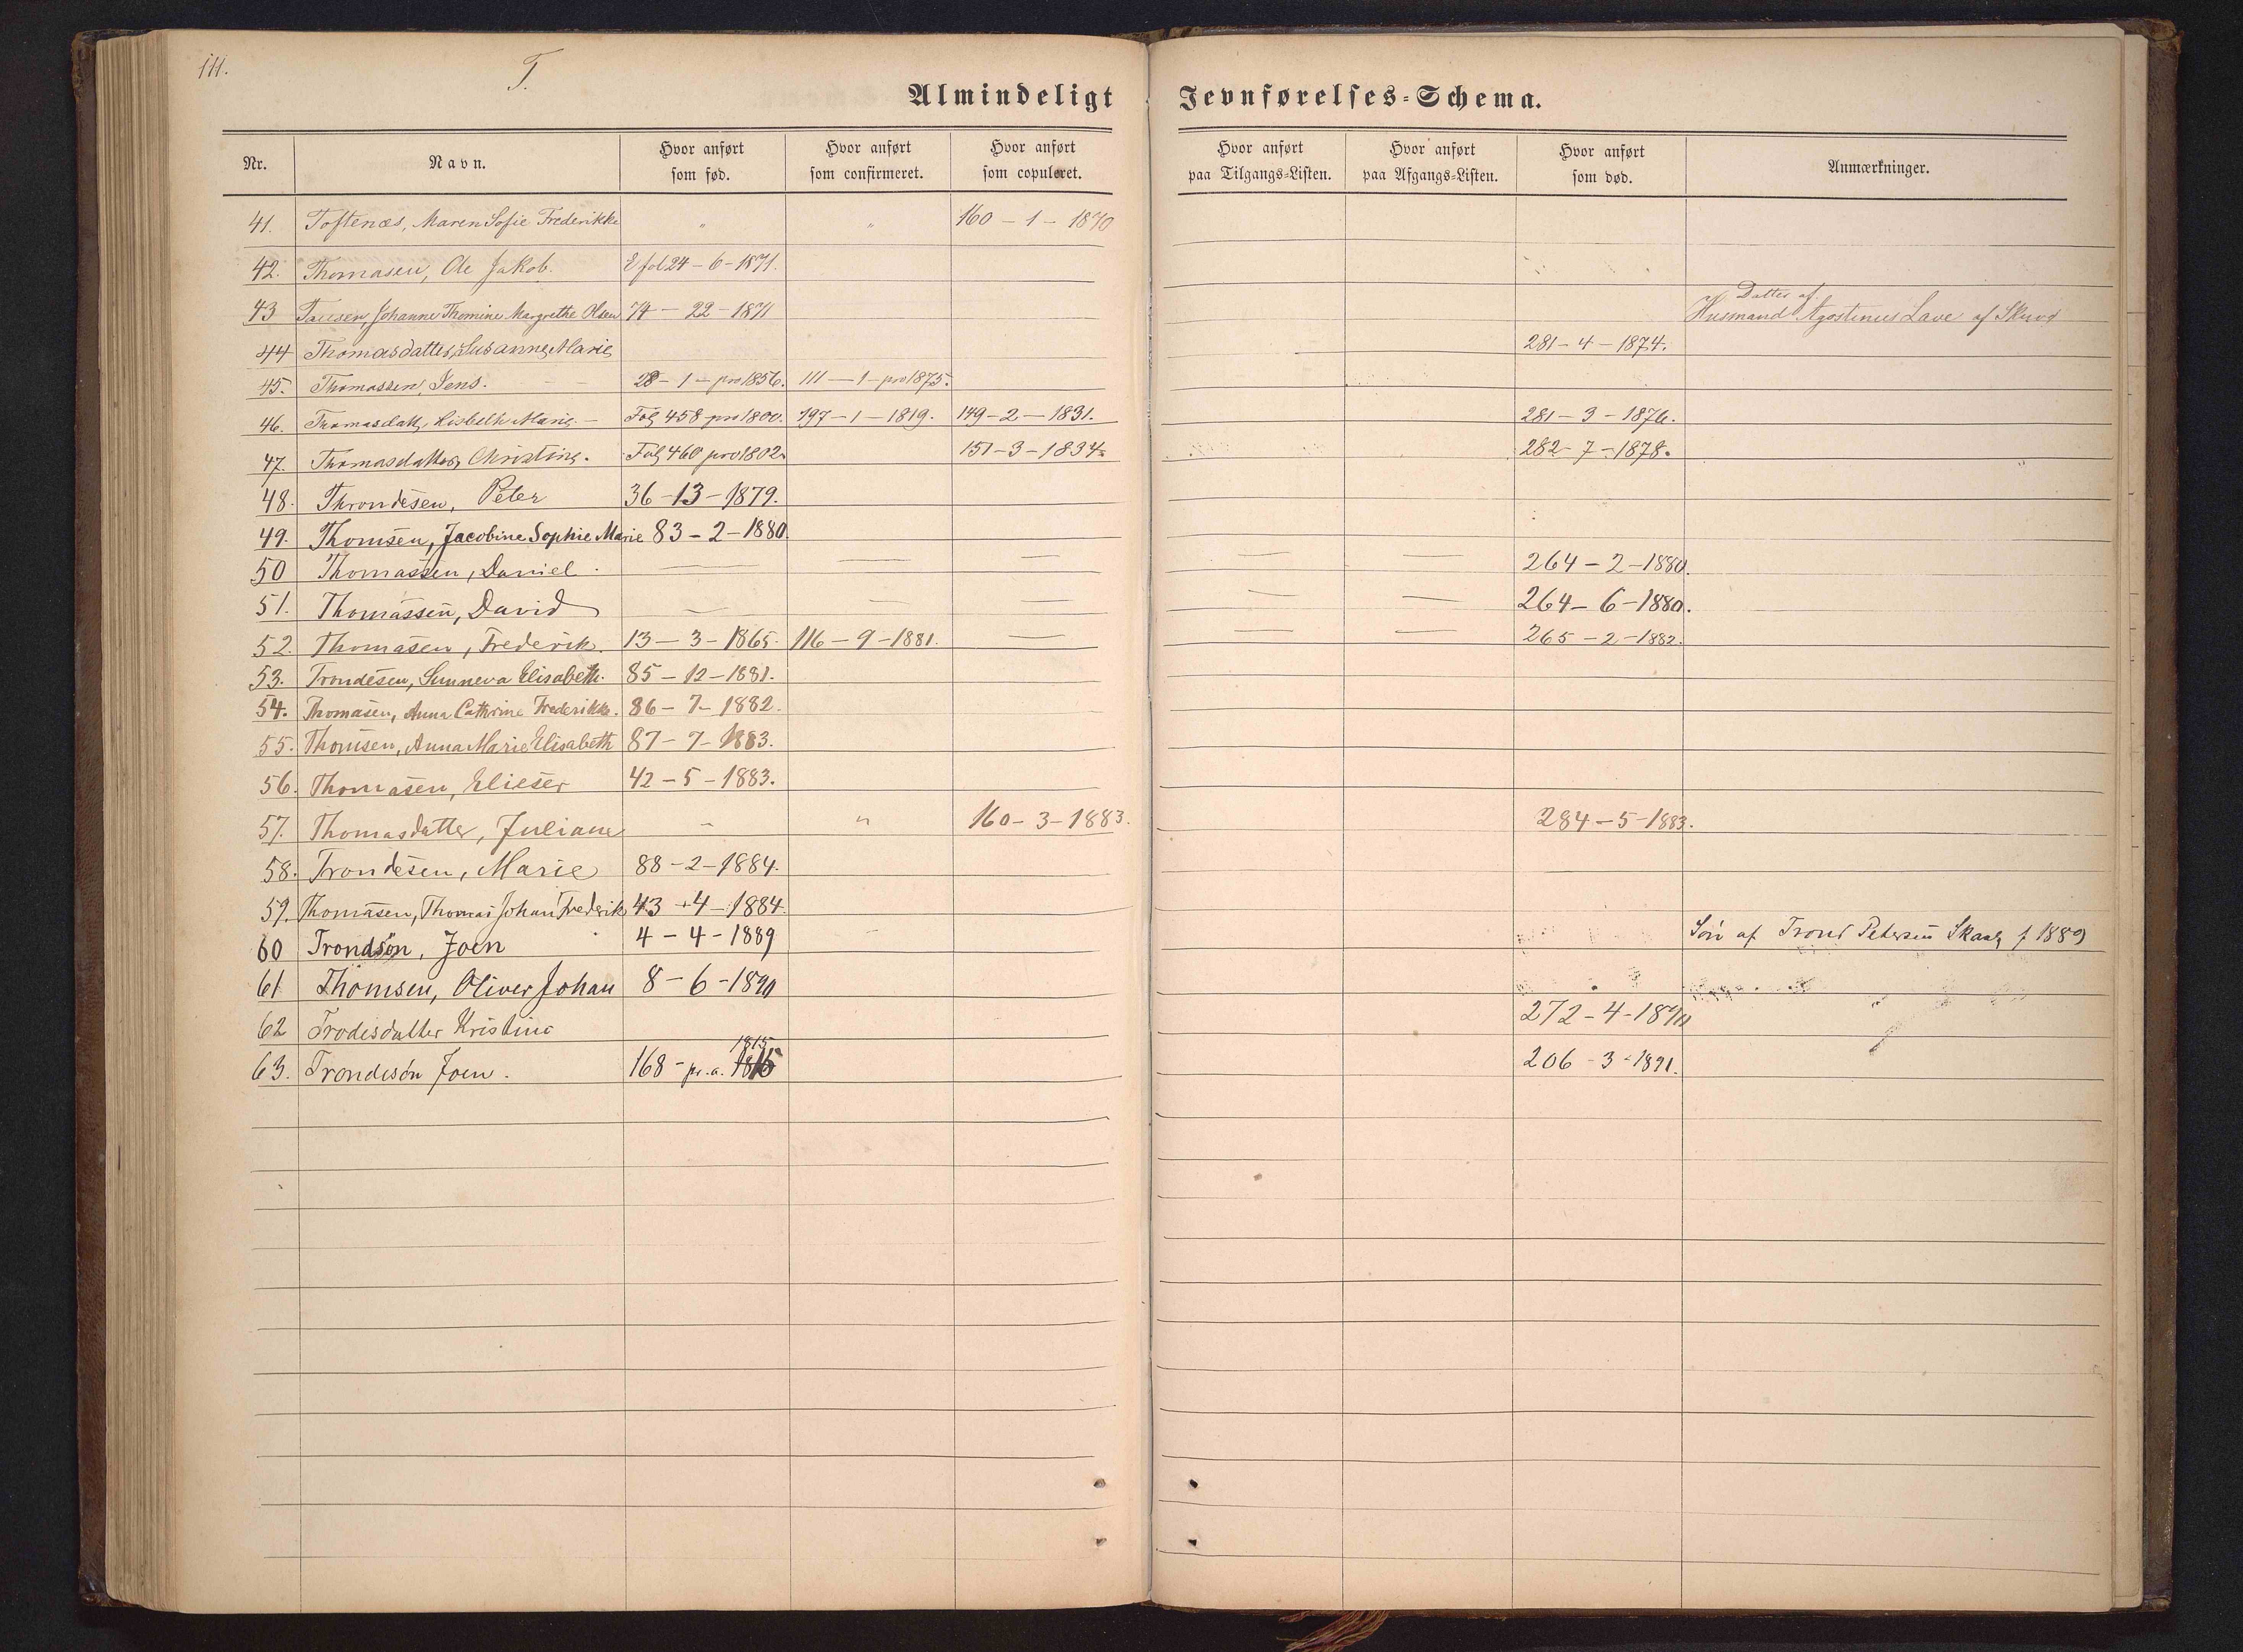 111.
T.
Almindeligt Jevnførelses-Schema.
Nr. Navn. Hvor anført som fød. Hvor anført som confirmeret. Hvor anført som copuleret. Hvor anført paa Tilgangs-Listen. Hvor anført paa Afgangs-Listen. Hvor anført som død. Anmærkninger.
41. Toftenæs, Maren Sofie Frederikke " " 160 - 1 - 1870
42. Thomasen, Ole Jakob. E fol 24 - 6 - 1871.
43 Johanne Thomine Margrethe Olsen 74 - 22 - 1871 Datter af Husmand Agostinus Lave af
44 Thomasdatter, Susanne Marie 281 - 4 - 1874.
45. Thomassen, Jens. 28 - 1 - pro 1856. 111 - 1 - pro 1875.
46. Thomasdatt, Lisbeth Marie - Fol 458 pro 1800. 197 - 1 - 1819. 149 - 2 - 1831. 281 - 3 - 1876.
47. Thomasdatter, Christine. Fol 460 pro 1802. 151 - 3 - 1834. 282 - 7 - 1878.
48. Throndesen, Peter 36 - 13 - 1879.
49. Thomsen, Jacobine Sophie Marie 83 - 2 - 1880.
50 Thomassen, Daniel - — — — — — 264 - 2 - 1880.
51. Thomassen, David — — — — — 264 - 6 - 1880.
52. Thomasen, Frederik. 13 - 3 - 1865. 116 - 9 - 1881. — — — 265 - 2 - 1882.
53. Trondesen, Sunneva Elisabeth. 85 - 12 - 1881.
54. Thomasen, Anna Cathrine Frederikke. 86 - 7 - 1882.
55. Thomsen, Anna Marie Elisabeth 87 - 7 - 1883.
56. Thomasen, Elieser 42 - 5 - 1883.
57. Thomasdatter, Juliane - " 160 - 3 - 1883. 284 - 5 - 1883.
58. Trondesen, Marie 88 - 2 - 1884.
59. Thomasen, Thomas Johan Frederik 43 - 4 - 1884.
60 Trondsön, Joen 4 - 4 - 1889 Sön af Trond Petersen f 1889
61 Thomsen, Oliver Johan 8 - 6 - 1890
62 Trodesdatter Kristine 272 - 4 - 1890 "
1815
63. Trondesön Joen. 168 - pr. a. 206 - 3 - 1891.